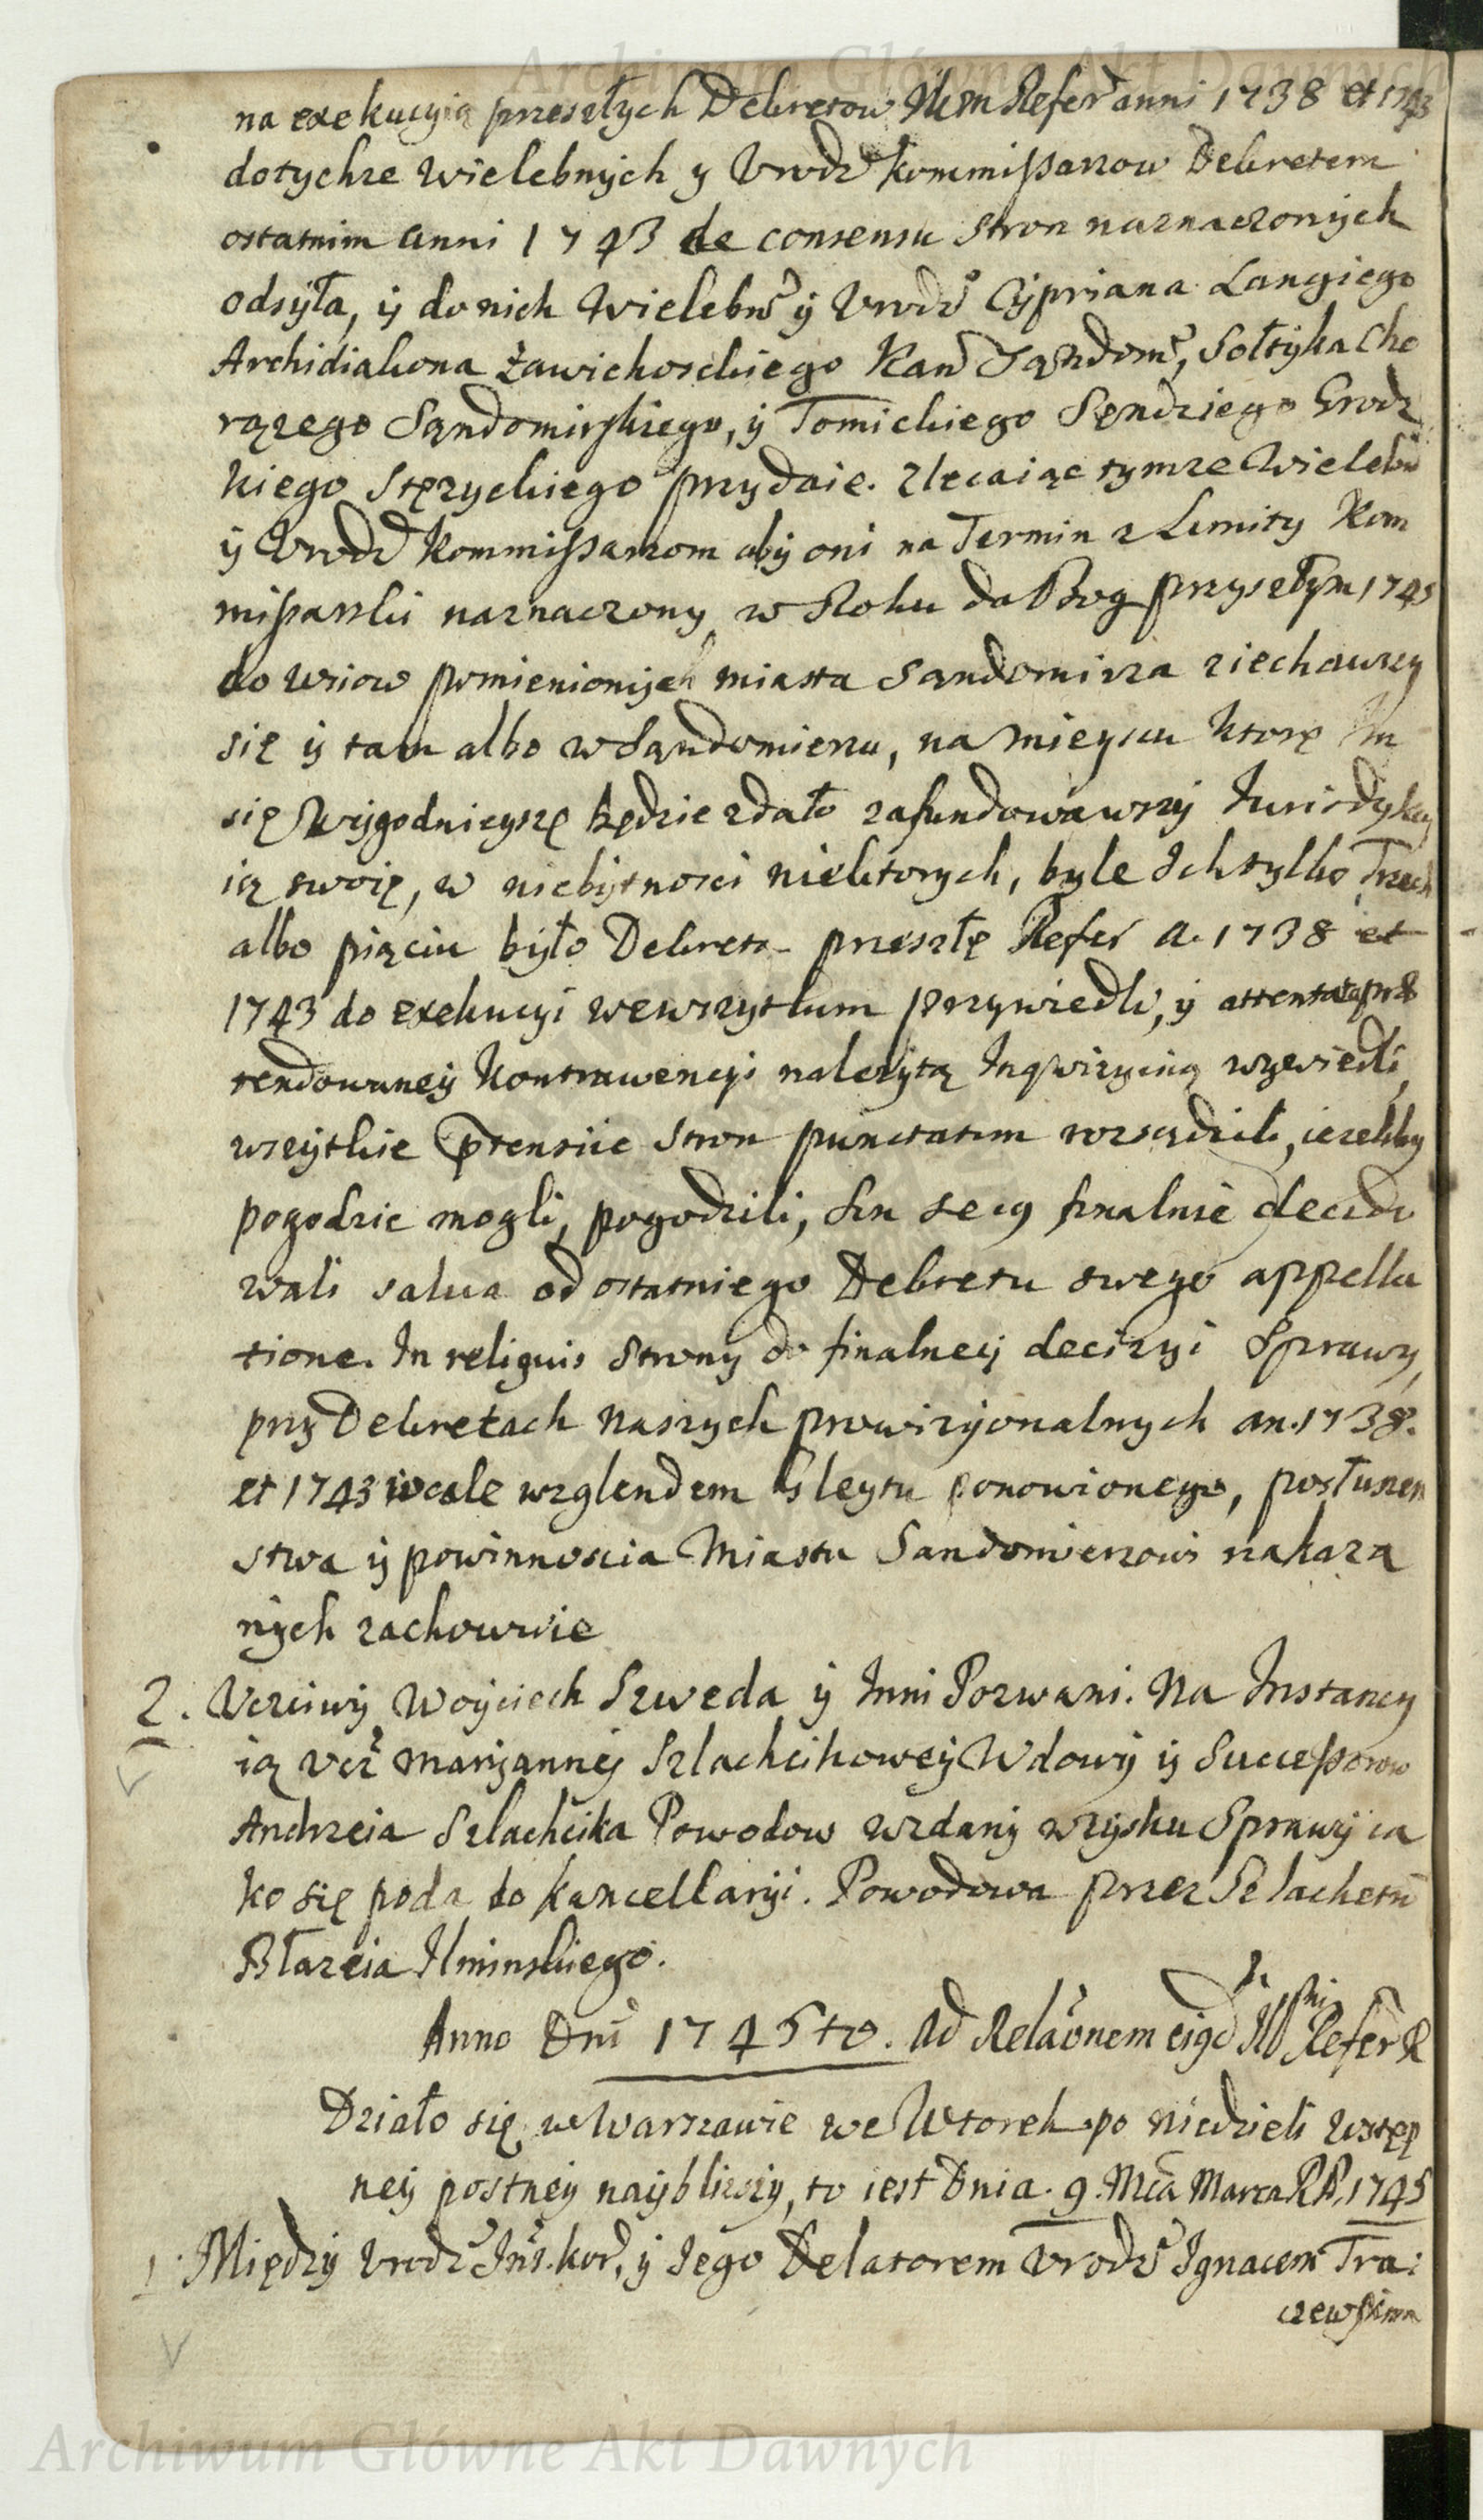 Archiwum Główne Akt Dawnych
na exekucyią przeszłych Dekretow Nrm Refer anni 1738 et 1743
dotychże Wielebnych y Vrodz kommissarzow Dekretem
ostatnim anni 1743 de consensu stron naznaczonych
odsyła, ÿ do nich Wielebn ÿ Vrodz Cÿpriana Langiego
Archidiakona Zawichoskiego Kan Sandom, Sołtÿka Cho
rązego Sandomirskiego, ÿ Tomickiego Sendziego Grodz
kiego Stęzyckiego przydaie. zlecaiąc tymze Wielebn
ÿ Vrodz kommissarzom abÿ oni na Termin z Limity Kom
missarski naznaczony w Roku da Bog przyszłym 1745
do wsiow pomienionÿch miasta Sandomirza ziechawszy
się ÿ tam albo w Sandomierzu, na mieyscu ktorę Im
się wÿgodnieyszę będzie zdało zafundowawszÿ Jurisdykcy
ią swoię, w niebÿtnosci niektorych, byle Ich tylko Trzech
albo pięciu bÿło Dekreta przeszłę Refer A. 1738 et
1743 do exekucyi wewszytkim przywiedli, ÿ attentata prae
tendowaneÿ kontrawencyi nalezÿtą Inqwizycią wywiedli,
wszÿtkie ptensiie stron punctatim rozsądzili, iezeliby
pogodzic mogli, pogodzili, sin secus finalnie decido
wali salva od ostatniego Dekretu swego appella
tione. In reliquis strony do finalneÿ deciżyi Sprawy,
przy Dekretach naszych prowizÿonalnych an. 1738.
et 1743 wcale wzglendem Gleytu ponowionego, posłuszen
stwa ÿ powinnoscia Miastu Sandomierzowi nakaza
nÿch zachowuie
2. Vczciwÿ Woÿciech Szweda ÿ Inni Pozwani. Na Instancy
ią Vcz Marÿanneÿ Szlachcikoweÿ Wdowÿ ÿ Successorow
Andrzeia Szlachcika Powodow wzdanÿ wzysku Sprawÿ ia
ko się poda do kancellarÿi. Powodowa przez Szlachetn
Błazeia Ilminskiego.
Anno Dni 1745to. Ad Relaonem eigd Illmi Refer R
Działo się w Warszawie we Wtorek po niedzieli wstęp
neÿ postneÿ naÿbliższÿ, to iest Dnia. 9. Mca Marca RP. 1745
1. Międzÿ Vrodz Ins. kor, ÿ Jego Delatorem Vrodz Ignacem Tra:
czewskim
Archiwum Główne Akt Dawnych